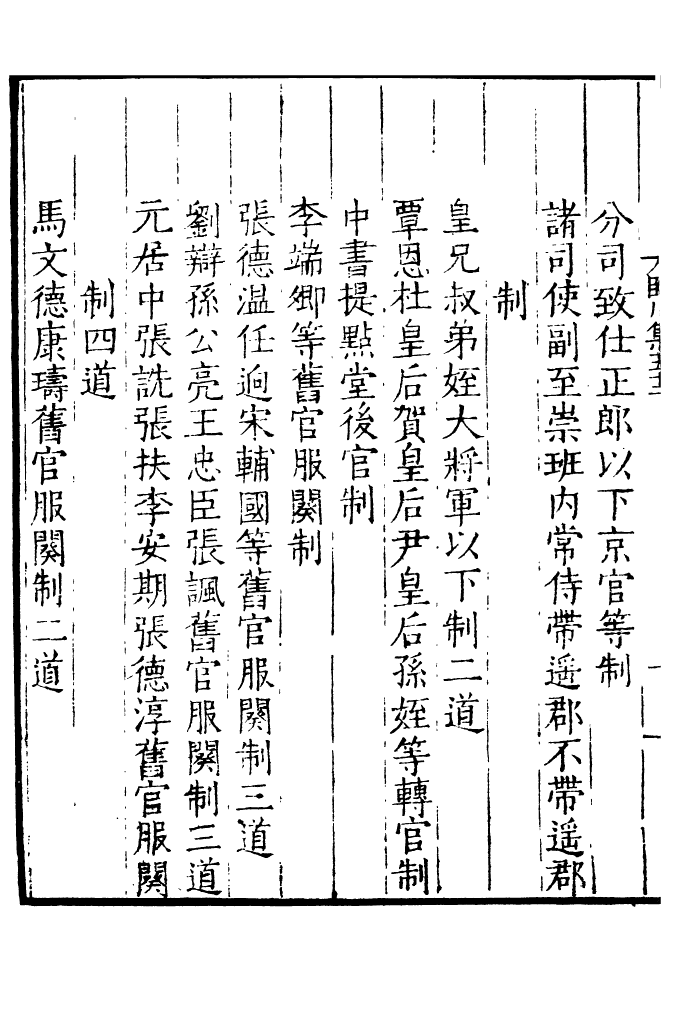 分司致仕正郎以下京官等制
諸司使副至崇班内常侍帶遥郡不帶遥郡
制
皇兄叔弟姪大將軍以下制二道
覃恩杜皇后賀皇后尹皇后孫姪等轉官制
中書提點堂後官制
李端卿等舊官服闋制
張德温任逈宋輔國等舊官服闋制三道
劉辯孫公亮王忠臣張諷舊官服闋制三道
元居中張詵張扶李安期張德淳舊官服闋
制四道
馬文德康璹舊官服闋制二道